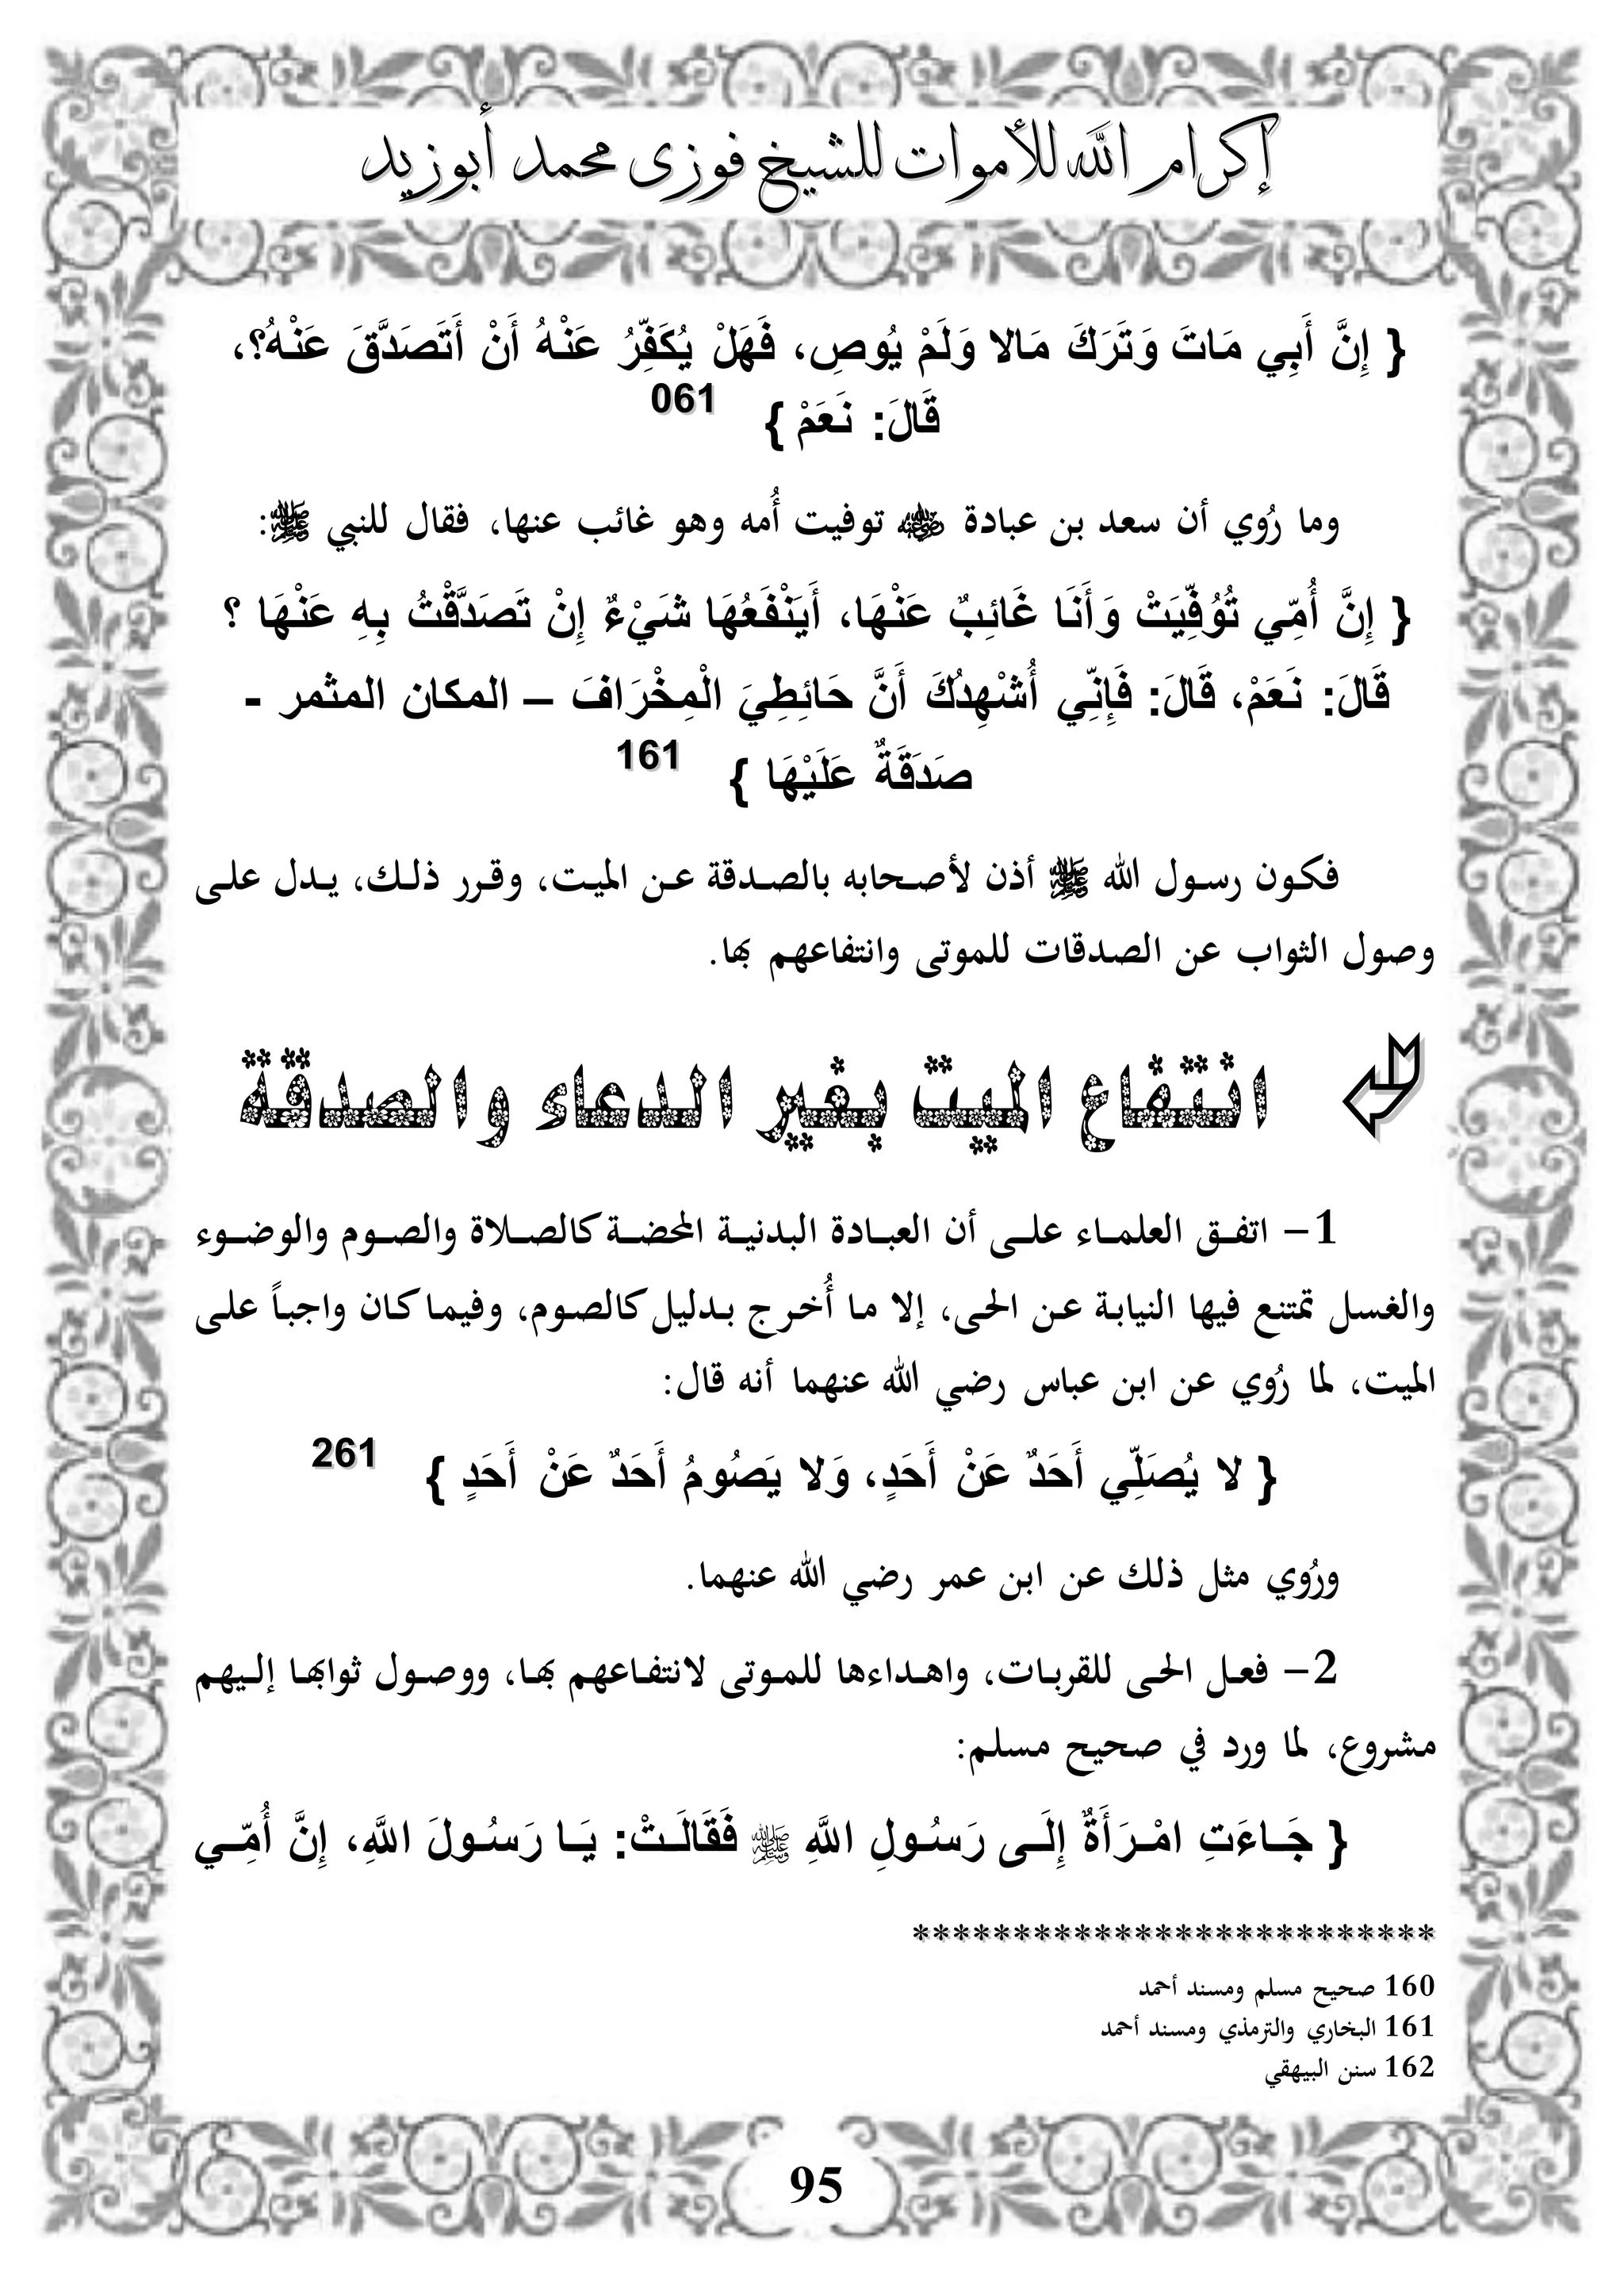 إكرام الله للأموات للشيخ فوزى محمد أبوزيد
{ إِنَّ أَبِي مَاتَ وَتَرَكَ مَالا وَلَمْ يُوصِ، فَهَلْ يُكَفِّرُ عَنْهُ أَنْ أَتَصَدَّقَ عَنْهُ؟،
قَالَ: نَعَمْ } 061
وما رُوي أن سعد بن عبادة ؓ توفيت أُمه وهو غائب عنها، فقال للنبي ﷺ:
{ إِنَّ أُمِّي تُوُفِّيَتْ وَأَنَا غَائِبٌ عَنْهَا، أَيَنْفَعُهَا شَيْءٌ إِنْ تَصَدَّقْتُ بِهِ عَنْهَا ؟
قَالَ: نَعَمْ، قَالَ: فَإِنِّي أُشْهِدُكَ أَنَّ حَائِطِيَ الْمِخْرَافَ – المكان المثمر -
صَدَقَةٌ عَلَيْهَا } 161
فكون رسول الله ﷺ أذن لأصحابه بالصدقة عن الميت، وقرر ذلك، يدل على
وصول الثواب عن الصدقات للموتى وانتفاعهم بها.
انتفاع الميت بغير الدعاء والصدقة
1- اتفق العلماء على أن العبادة البدنية المحضة كالصلاة والصوم والوضوء
والغسل تمتنع فيها النيابة عن الحى، إلا ما أُخرج بدليل كالصوم، وفيما كان واجباً على
الميت، لما رُوي عن ابن عباس رضي الله عنهما أنه قال:
{ لا يُصَلِّي أَحَدٌ عَنْ أَحَدٍ، وَلا يَصُومُ أَحَدٌ عَنْ أَحَدٍ } 261
ورُوي مثل ذلك عن ابن عمر رضي الله عنهما.
2- فعل الحى للقربات، واهداءها للموتى لانتفاعهم بها، ووصول ثوابها إليهم
مشروع، لما ورد في صحيح مسلم:
{ جَاءَتِ امْرَأَةٌ إِلَى رَسُولِ اللَّهِ ﷺ فَقَالَتْ: يَا رَسُولَ اللَّهِ، إِنَّ أُمِّي
**************************
160 صحيح مسلم ومسند أحمد
161 البخاري والترمذي ومسند أحمد
162 سنن البيهقي
95